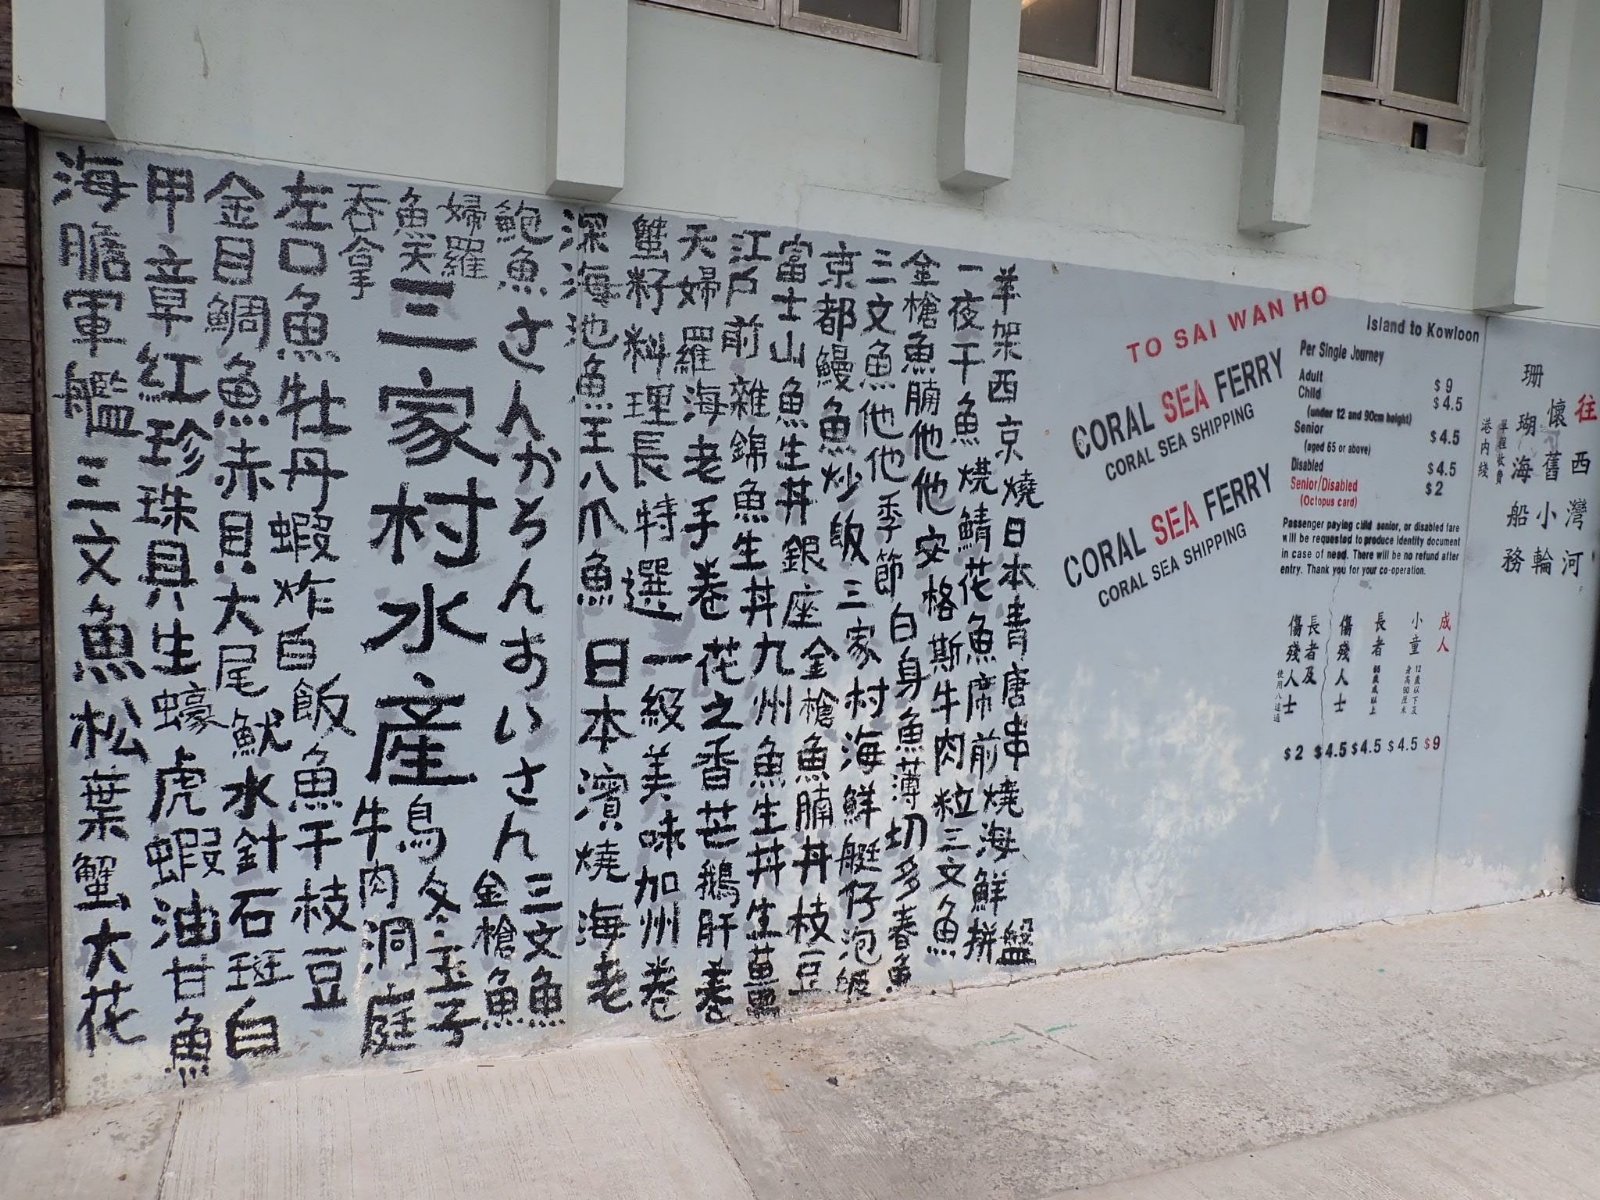 海膽軍艦三文魚松葉蟹大花
甲章紅珍珠貝生蠔虎蝦油甘魚
金目鯛魚赤貝大尾魷水針石斑白
左口魚牡丹蝦炸白飯魚干枝豆
吞拿
魚天
婦羅
三家村水産
牛肉洞庭
烏冬玉子
鮑魚さんかろんおいさん
金槍魚
三文魚
深海池魚王八爪魚日本濱燒海老
蟹籽料理長特選一級美味加州卷
天婦羅海老手卷花之香芒鵝肝卷
江戶前雜錦魚生丼九州魚生丼生薑
富士山魚生丼銀座金槍魚腩丼枝豆
京都鰻魚炒飯三家村海鮮艇仔泡飯
三文魚他他季節白身魚薄切多春魚
金槍魚腩他他安格斯牛肉粒三文魚
一夜干魚燒鯖花魚席前燒海鮮拼
羊架西京燒日本青唐串燒盤
TO SAI WAN HO
CORAL SEA FERRY
CORAL SEA SHIPPING
CORAL SEA FERRY
CORAL SEA SHIPPING
Island to Kowloon
Per Single Journey
Adult $9
Child $4.5
(under 12 and 90cm height)
Senior $4.5
(aged 65 or above)
Disabled $4.5
Senior/Disabled $2
(Octopus card)
Passenger paying child senior, or disabled fare
will be requested to produce identity document
in case of need. There will be no refund after
entry. Thank you for your co-operation.
往西灣河
懷舊小輪
珊瑚海船務
單程收費
港內綫
成人 $9
小童 12歲以下及身高90厘米 $4.5
長者 65歲或以上 $4.5
傷殘人士 $4.5
長者及傷殘人士 使用八達通 $2